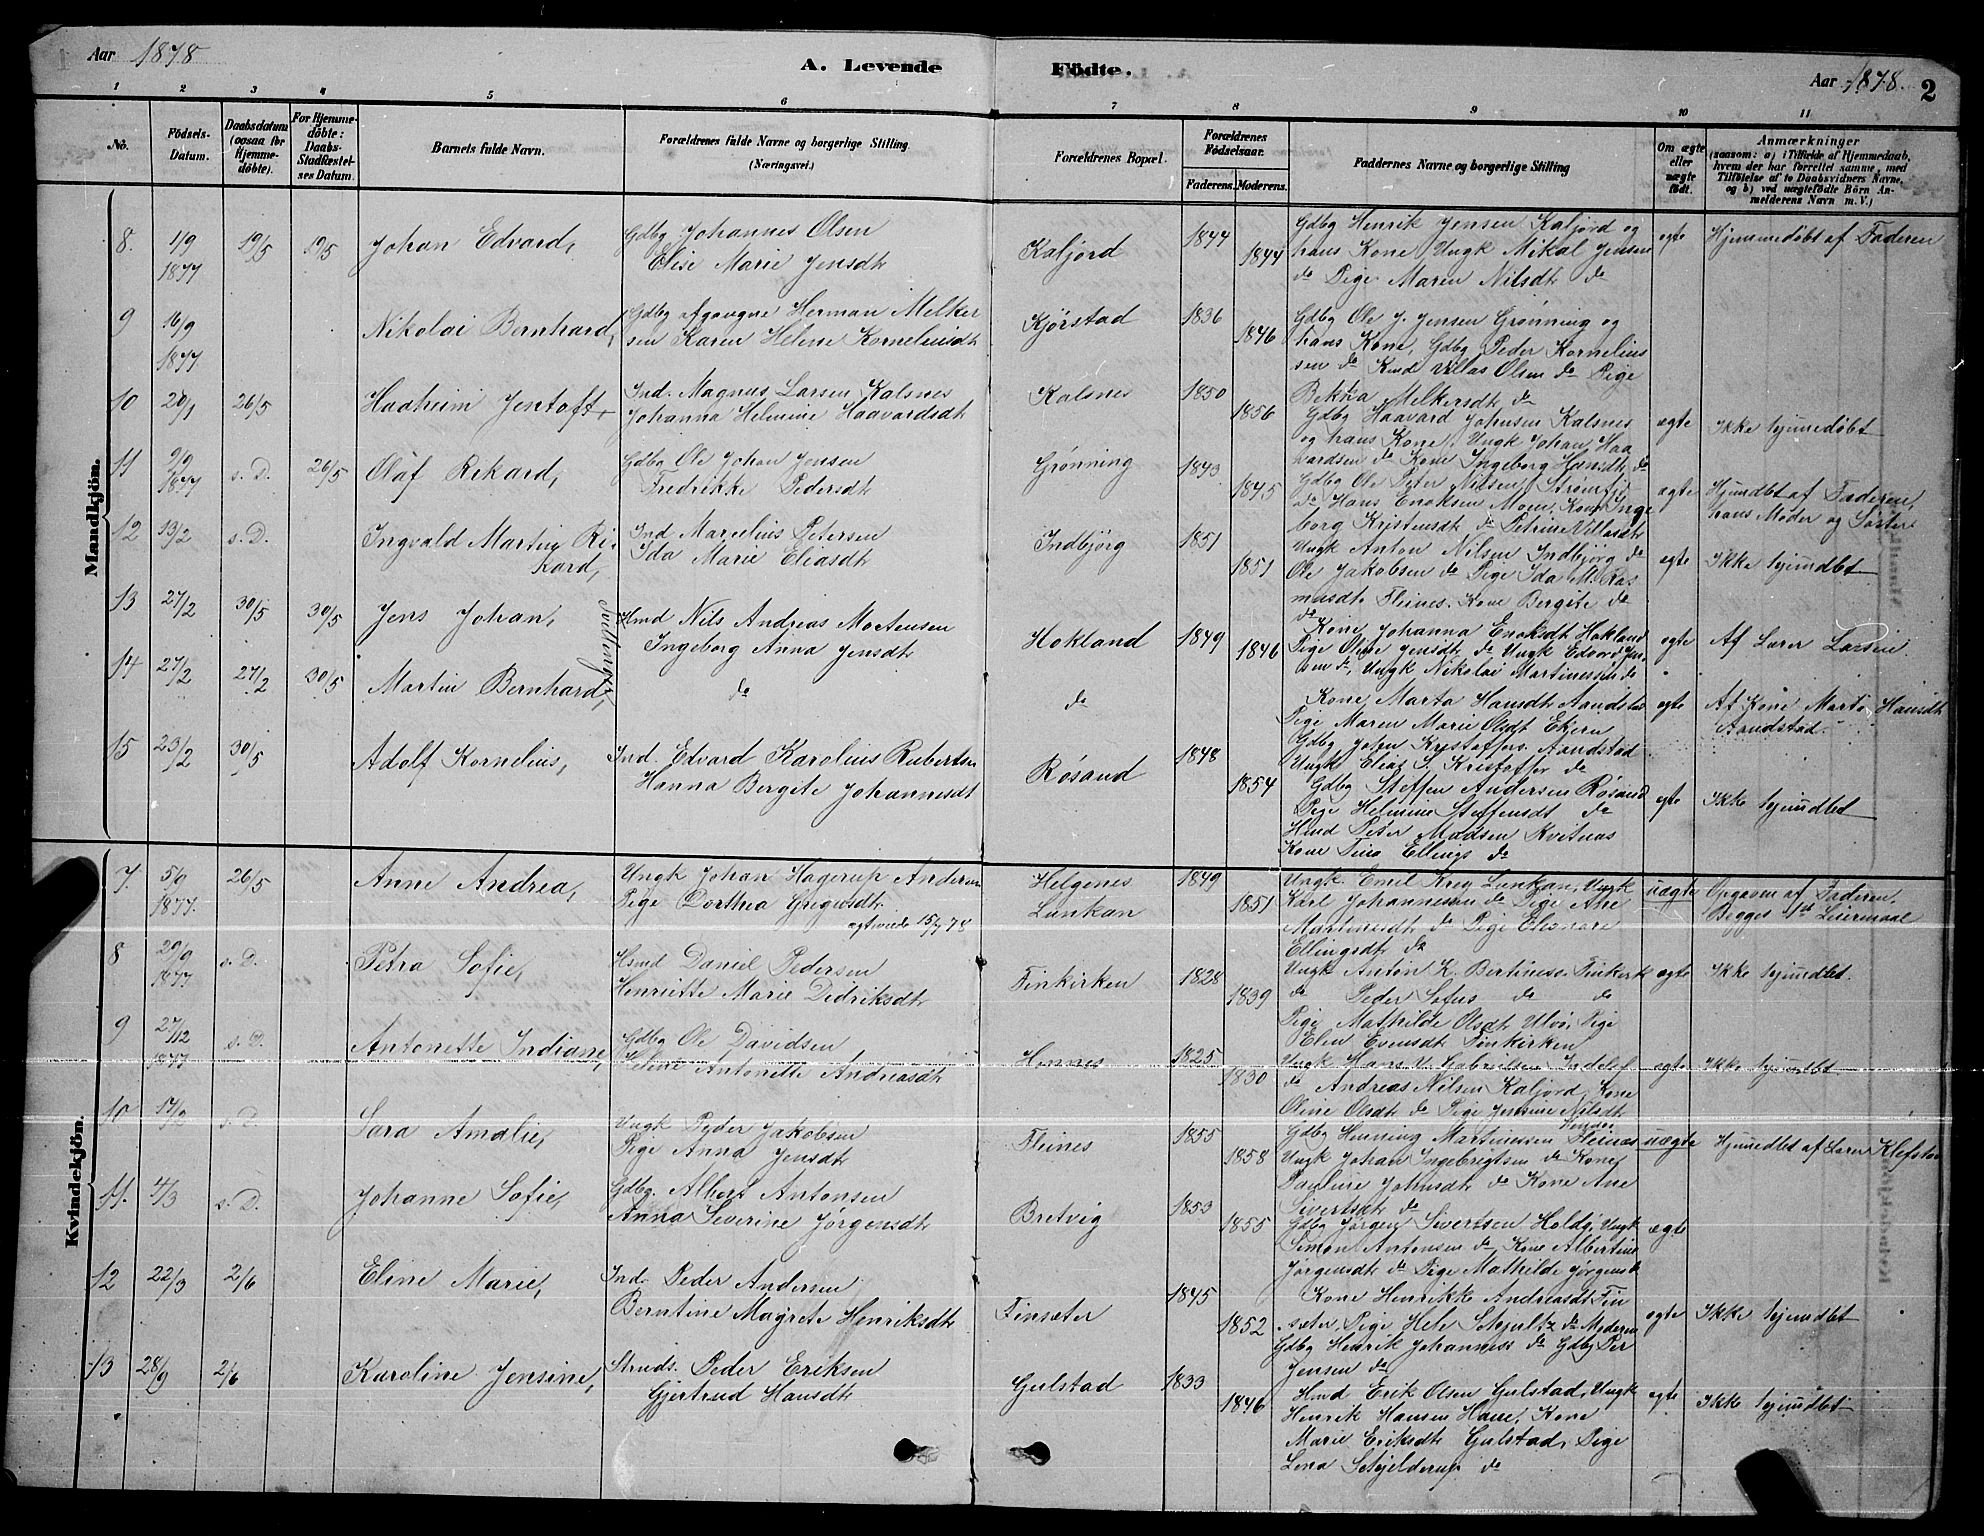 Aar 1878
A. Levende Födte.
Aar 1878. 2
1 2 3 4 5 6 7 8 9 10 11
No.
Födsels-Datum.
Daabsdatum (ogsaa for Hjemmedöbte).
For Hjemmedöbte: Daabs-Stadfæstelses Datum.
Barnets fulde Navn.
Forældrenes fulde Navne og borgerlige Stilling.
(Næringsvei.)
Forældrenes Bopæl.
Forældrenes Födselsaar.
Faderens. Moderens.
Faddernes Navne og borgerlige Stilling
Om ægte eller uægte födt.
Anmærkninger
(saasom: a) i Tilfælde af Hjemmedaab,
hvem der har forrettet samme, med
Tilföielse af to Daabsvidners Navne,
og b) ved uægtefödte Börn An-
melderens Navn m. V.)
Mandkjön.
8. 1/9 1877 19/5 19/5 Johan Edvard, Gdbg Johannes Olsen
Elise Marie Jensdt
Kaljord 1844 1844
Gdbg Henrik Jensen Kaljord og
hans Kone Ungk Mikal Jensen
do Pige Maren Nilsdt do
egte Hjemmedöbt af Faderen
9 16/9 1877. Nikolai Bernhard, Gdbg afgangne Herman Melker
sen Karen Helene Kornelinsdt
Kjørstad 1836 1846
Gdbg Ole J. Jensen Grønning og
hans Kone, Gdbg Peder Kornelius
sen do Kmd Villas Olsen do Pige
Bekka Melkersdt do
10 20/1 26/5 Haaheim Jentoft Ind. Magnus Larsen Kalsnes
Johanna Helmine Haavardsdt
Kalsnes 1850 1856
Gdbg Haavard Johnsen Kalsnes
og hans Kone, Ungk Johan Haa
vardsen do Kone Ingeborg Hansdt do
ægte Ikke hjemmedöbt
11 9/9 1877 s. D. 26/5 Olaf Rikard, Gdbg Ole Johan Jensen
Fredrikke Pedersdt
Grønning 1843 1845
Gdbg Ole Peter Nilsen Strømfj
do Hans Enoksen Moen, Kone Inge
borg Kristensdt do Petrine Villasdt
ægte Hjemdbt af Faderen,
hans Moder og Søster
12 13/2 s. D. Ingvald Martin Ri-
kard,
Ind Marselius Petersen
Ida Marie Eliasdt
Indbjörg 1851 1851
Ungk Anton Nilsen Indbjörg do
Ole Jakobsen do Pige Ida M. Ras
musdt. Fleines. Kone Bergite do
egte Ikke hjemdbt
13 27/2 30/5 30/5 Jens Johan, Hmd Nils Andreas Mortensen
Ingeborg Anna Jensdt
Tvillinger,
Hokland 1849 1846
do Kone Johanna Enoksdt Hokland
Pige Oline Jensdt do Ungk Edvard Jen
sen do, Ungk Nikolai Martinessen do
egte Af Lærer Larsen.
14 27/2 27/2 30/5 Martin Bernhard, do
do
Kone Marta Hansdt Aandstad
Pige Maren Marie Olsdt Ekern
Gdbg John Kristoffers. Aandstad
Ungk Elias S. Kristoffer do
egte Af Kone Marta Hansdt
Aandstad.
15 23/2 30/5 Adolf Kornelius, Ind. Edvard Karolius Rubertsen
Hanna Bergite Johannesdt
Røsand 1848 1854
Gdbg Steffen Andersen Røsand
Pige Helmine Steffensdt do
Hmd Peter Madsen Kvitnes
Kone Tina Ellings do
egte Ikke hjemdbt
Kvindekjön.
7. 5/9 1877. 26/5 Anne Andrea, Ungk Johan Hagerup Andersen
Pige Dorthea Gregusdt
egtviede 15/7 78
Helgenes
Lunkan 1849 1851
Ungk. Emil Krey Lunkan, Ungk
Karl Johannesen do Pige Ane
Martinesdt do Pige Eleonore
Ellingsdt do
uægte Opgaven af Faderen.
Begges 1st Leiermaal
8 29/9 1877 s. D. Petra Sofie, Hsmd Daniel Pedersen
Henriette Marie Didriksdt
Finkirken 1828 1839
Ungk Anton K. Bertiness. Finkirk
do Peder Sofus do do
Pige Mathilde Olsdt Ulvø, Pige
Elen Evensdt Finkirken
ægte Ikke hjemdbt.
9 27/12 1877 s. D. Antonette Indiane, Gdbg Ole Davidsen
Heline Antonette Andreasdt
Hennes 1825 1830
Ungk Hans U. Gabrielsen Indelef
do Andreas Nilsen Kaljord, Kone
Oline Olsdt do Pige Jensine Nilsdt
Hennes
egte Ikke hjemdbt
10 17/2 s. D. Sara Amalie, Ungk Peder Jakobsen
Pige Anna Jensdt
Fleines 1855 1858
Gdbg Henning Martinessen Fleines
Ungk Johan Ingebrigtsen do Kone
Pauline Johnsdt do Kone Ane
Sivertsdt do
uægte Hjemdbt af Lærer Klefstad
11. 4/3 s. D. Johanne Sofie, Gdbg. Albert Antonsen
Anna Severine Jørgensdt
Bretvig 1853 1855
Gdbg Jørgen Sivertsen Holdø, Ungk
Simon Antonsen do, Kone Albertine
Jørgensdt do Pige Mathilde Jørgensd
ægte
12 22/3 2/6 Eline Marie, Ind. Peder Andersen
Berntine Magrete Henriksdt
Finsæter 1845 1852
Kone Henrikke Andreasdt Fin
sæter, Pige Hele Schjultz do Moderen
Gdbg Henrik Johanness do Gdbg Per
Jensen do
egte Ikke hjemdbt
13 28/9 2/6 Karoline Jensine, Strnds. Peder Eriksen
Gjertrud Hansdt
Gulstad 1833 1846
Hmd Erik Olsen Gulstad, Ungk
Henrik Hansen Haue, Kone
Marie Eriksdt Gulstad, Pige
Lena Schjelderup do
egte Ikke hjemdbt